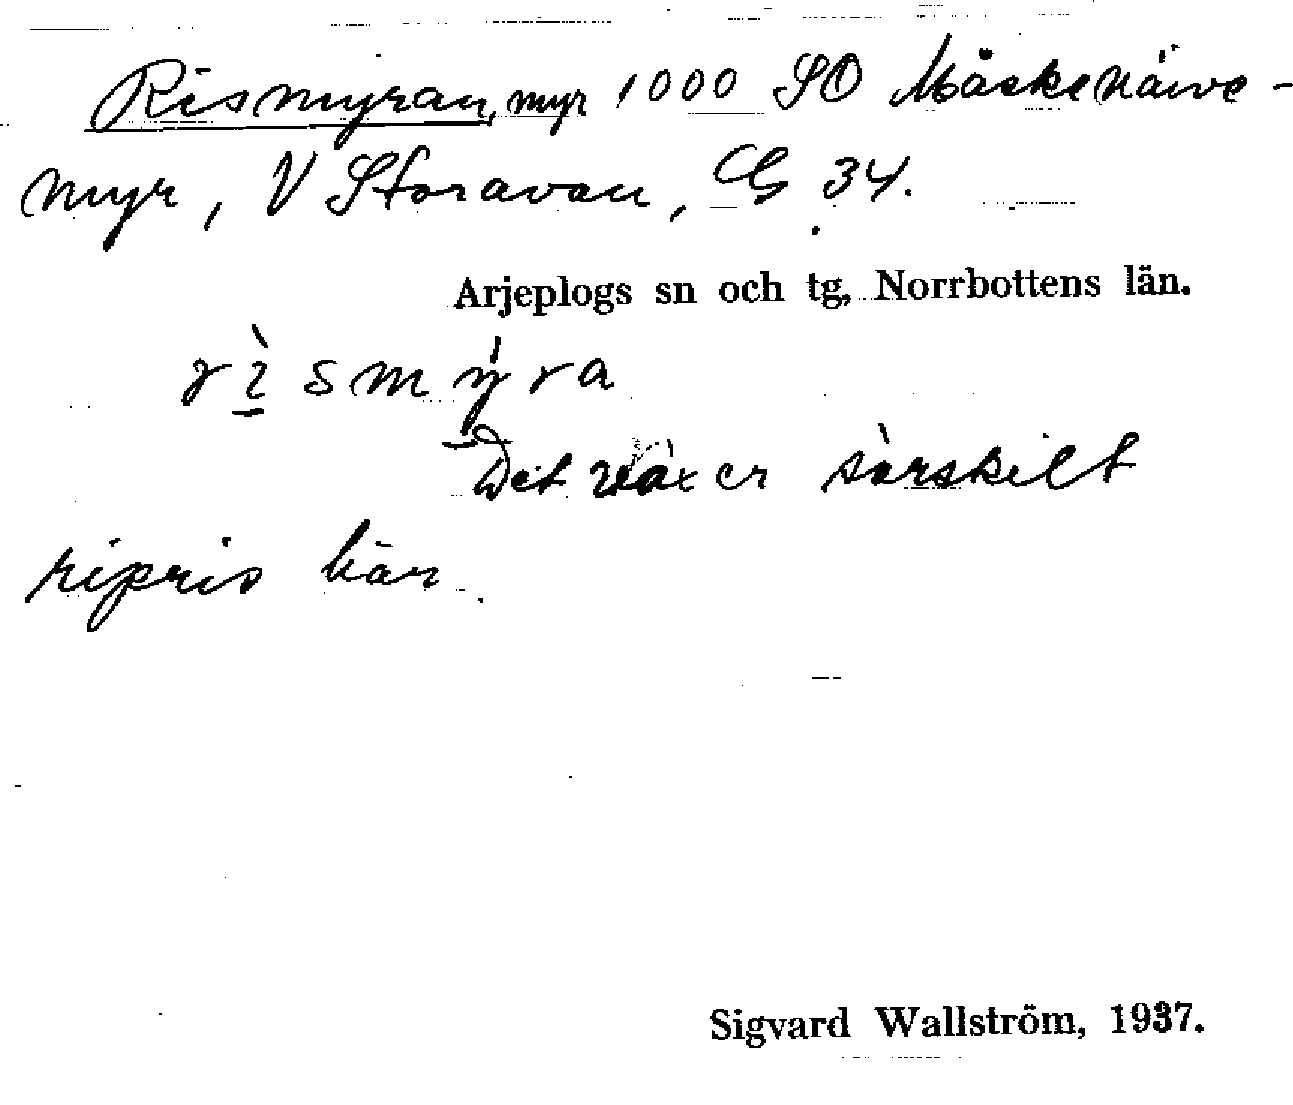 Rismyran, myr 1000 SO Måskenäive-
myr, V Storavan, CG 34.
Arjeplogs sn och tg, Norrbottens län.
rìsmýra
Det växer särskilt
ripris här.
Sigvard Wallström, 1937.